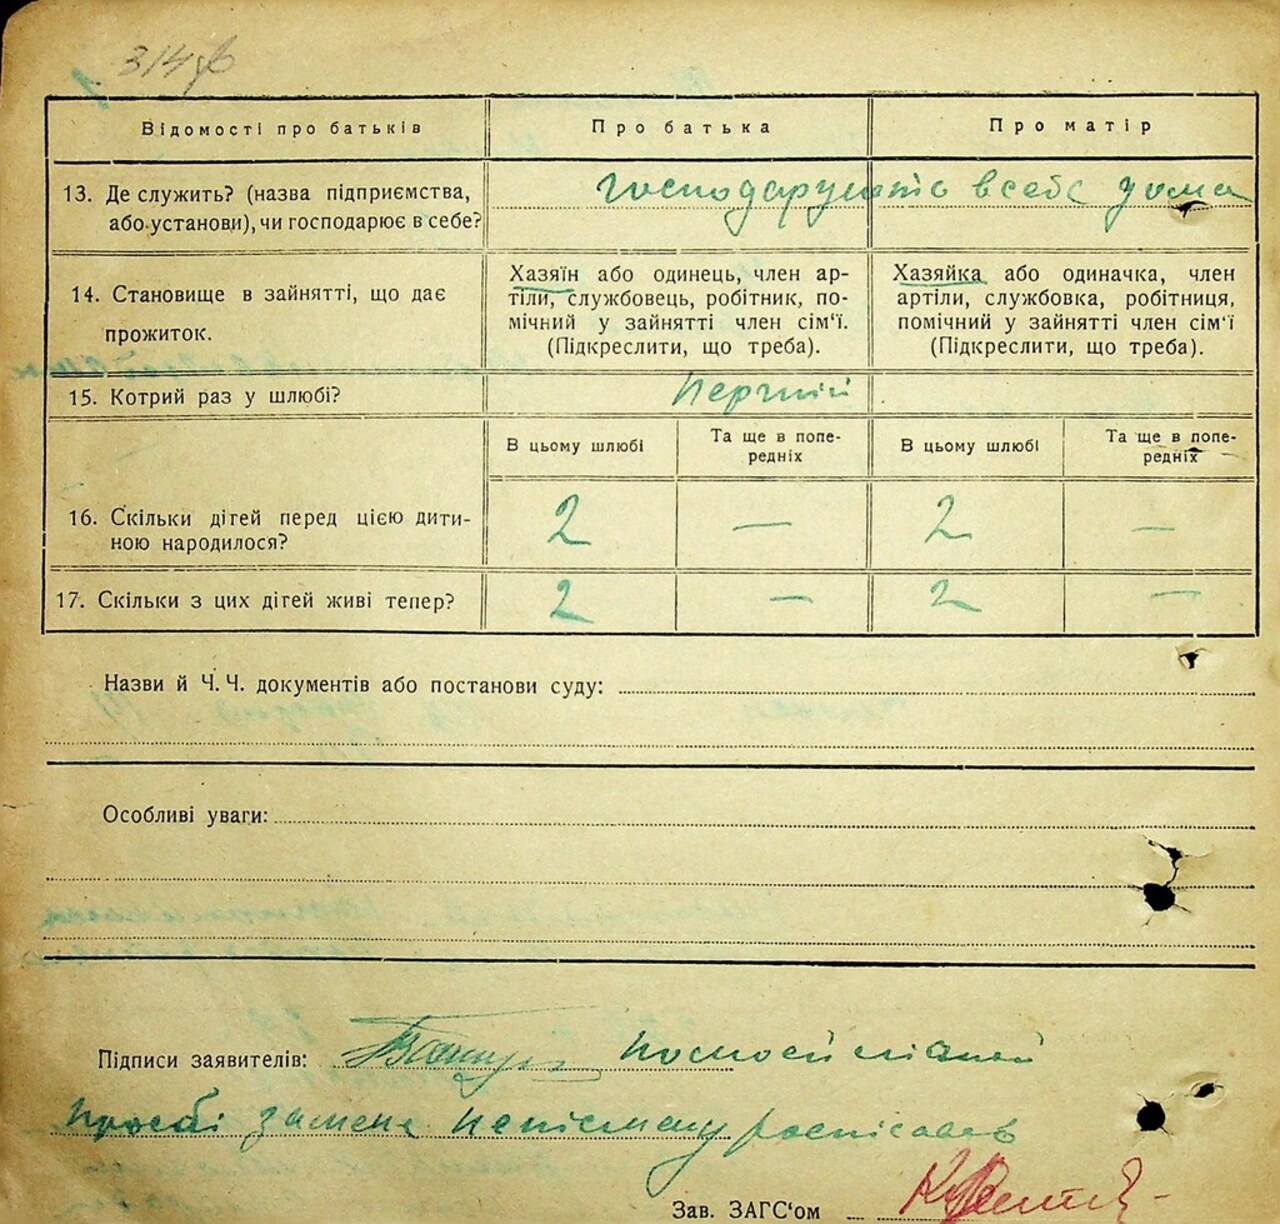 314
Відомості про батьків
Про батька
Про матір
13. Де служить? (назва підприємства,
або установи), чи господарює в себе?
господарують в себе дома
14. Становище в зайнятті, що дає
прожиток.
Хазяїн або одинець, член ар-
тіли, службовець, робітник, по-
мічний у зайнятті член сім‘ї.
(Підкреслити, що треба).
Хазяйка або одиначка, член
артіли, службовка, робітниця,
помічний у зайнятті член сім‘ї
(Підкреслити, що треба).
15. Котрий раз у шлюбі?
Перший
В цьому шлюбі
Та ще в попе-
редніх
В цьому шлюбі
Та ще в попе-
редніх
16. Скільки дітей перед цією дити-
ною народилося?
2 — 2 —
17. Скільки з цих дітей живі тепер?
2 — 2 —
Назви й Ч. Ч. документів або постанови суду:
Особливі уваги:
Підписи заявителів:
прозбі замене непісмену росписався
Зав. ЗАГС‘ом